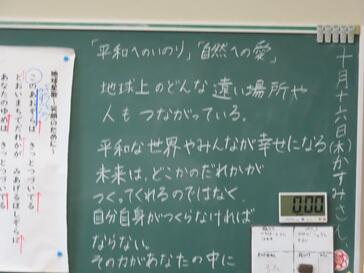 「平和へのいのり」「自然への愛」
地球上のどんな遠い場所や
人もつながっている。
平和な世界やみんなが幸せになる
未来は、どこかのだれかが
つくってくれるのではなく、
自分自身がつくらなければ
ならない。
その力があなたの中に
十月十六日(木)かすみさん
0:00
地球星歌〜笑顔のために〜
このあおぞらは きっとつづいてる
とおいまちでだれかが みあげるほしぞらは
あなたのゆめは きっとつづいてる